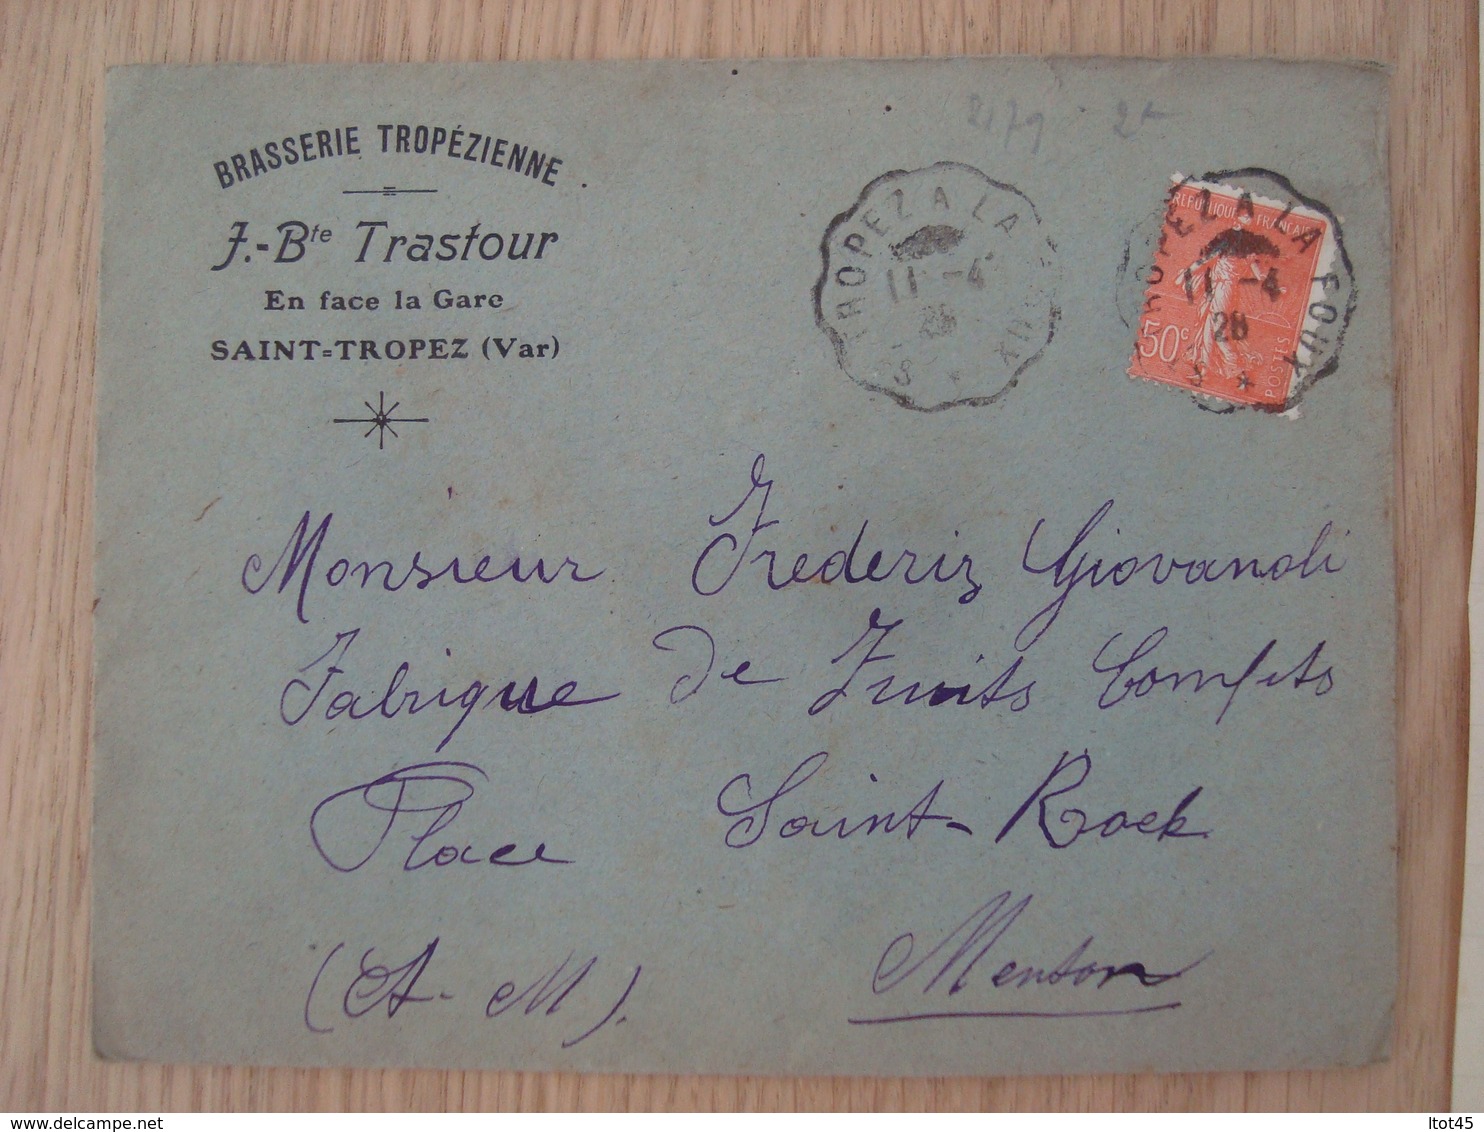 BRASSERIE TROPÉZIENNE
J.-Bte Trastour
En face la Gare
SAINT=TROPEZ (Var)
2179 - 2
ST TROPEZ A LA FOUX
11 -4
28
REPUBLIQUE FRANÇAISE
50c
POSTES
ST TROPEZ A LA FOUX
11 -4
28
Monsieur Frederiz Giovanoli
Fabrique De Fruits Comfits
Place Saint-Rock
(A-M). Menton
ltot45